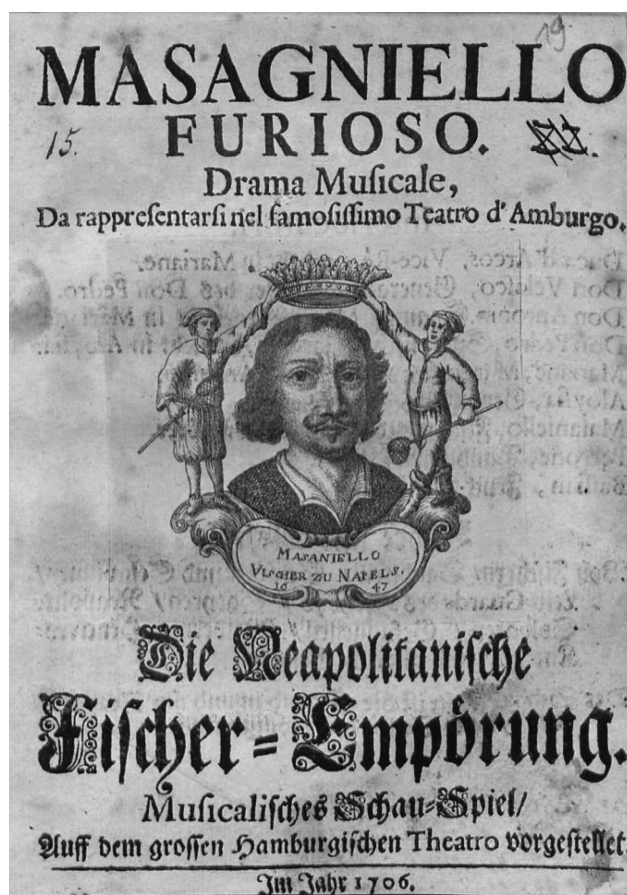 19
MASAGNIELLO
15. FURIOSO.
Drama Muſicale,
Da rappreſentarſi nel famoſiſſimo Teatro d'Amburgo.
MASANIELLO
VISCHER ZU NAPELS.
16 47
Die Neapolitaniſche
Fiſcher=Empörung.
Muſicaliſches Schau=Spiel/
Auff dem groſſen Hamburgiſchen Theatro vorgeſtellet.
Im Jahr 1706.